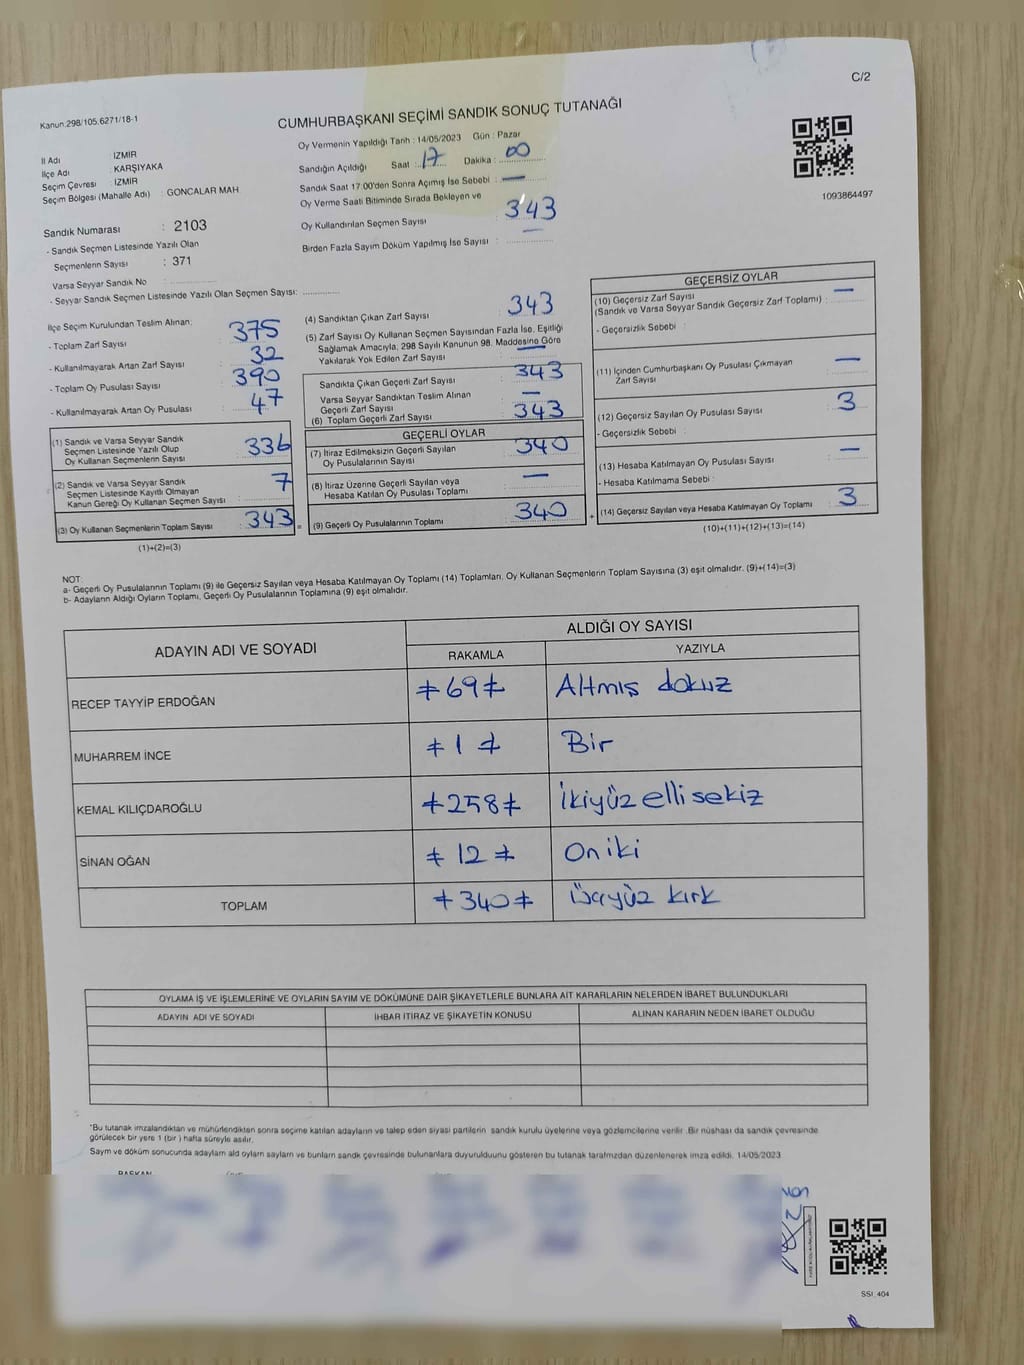 C/2
Kanun.298/105.6271/18-1
CUMHURBAŞKANI SEÇİMİ SANDIK SONUÇ TUTANAĞI
İl Adı : İZMİR
İlçe Adı : KARŞIYAKA
Seçim Çevresi : İZMİR
Seçim Bölgesi (Mahalle Adı) : GONCALAR MAH
Sandık Numarası : 2103
- Sandık Seçmen Listesinde Yazılı Olan
Seçmenlerin Sayısı : 371
Varsa Seyyar Sandık No :
- Seyyar Sandık Seçmen Listesinde Yazılı Olan Seçmen Sayısı:
Oy Vermenin Yapıldığı Tarih : 14/05/2023 Gün : Pazar
Sandığın Açıldığı Saat : 17 Dakika : 00
Sandık Saat 17:00'den Sonra Açılmış İse Sebebi : —
Oy Verme Saati Bitiminde Sırada Bekleyen ve
Oy Kullandırılan Seçmen Sayısı : 343
Birden Fazla Sayım Döküm Yapılmış İse Sayısı : —
1093864497
İlçe Seçim Kurulundan Teslim Alınan:
- Toplam Zarf Sayısı : 375
- Kullanılmayarak Artan Zarf Sayısı : 32
- Toplam Oy Pusulası Sayısı : 390
- Kullanılmayarak Artan Oy Pusulası : 47
(1) Sandık ve Varsa Seyyar Sandık
Seçmen Listesinde Yazılı Olup
Oy Kullanan Seçmenlerin Sayısı : 336
(2) Sandık ve Varsa Seyyar Sandık
Seçmen Listesinde Kayıtlı Olmayan
Kanun Gereği Oy Kullanan Seçmen Sayısı : 7
(3) Oy Kullanan Seçmenlerin Toplam Sayısı : 343 =
(1)+(2)=(3)
(4) Sandıktan Çıkan Zarf Sayısı : 343
(5) Zarf Sayısı Oy Kullanan Seçmen Sayısından Fazla İse, Eşitliği
Sağlamak Amacıyla, 298 Sayılı Kanunun 98. Maddesine Göre
Yakılarak Yok Edilen Zarf Sayısı : —
Sandıkta Çıkan Geçerli Zarf Sayısı : 343
Varsa Seyyar Sandıktan Teslim Alınan
Geçerli Zarf Sayısı : —
(6) Toplam Geçerli Zarf Sayısı : 343
GEÇERLİ OYLAR
(7) İtiraz Edilmeksizin Geçerli Sayılan
Oy Pusulalarının Sayısı : 340
(8) İtiraz Üzerine Geçerli Sayılan veya
Hesaba Katılan Oy Pusulası Toplamı : —
(9) Geçerli Oy Pusulalarının Toplamı : 340 +
GEÇERSİZ OYLAR
(10) Geçersiz Zarf Sayısı
(Sandık ve Varsa Seyyar Sandık Geçersiz Zarf Toplamı) : —
- Geçersizlik Sebebi :
(11) İçinden Cumhurbaşkanı Oy Pusulası Çıkmayan
Zarf Sayısı : —
(12) Geçersiz Sayılan Oy Pusulası Sayısı : 3
- Geçersizlik Sebebi :
(13) Hesaba Katılmayan Oy Pusulası Sayısı : —
- Hesaba Katılmama Sebebi :
(14) Geçersiz Sayılan veya Hesaba Katılmayan Oy Toplamı : 3
(10)+(11)+(12)+(13)=(14)
NOT:
a- Geçerli Oy Pusulalarının Toplamı (9) ile Geçersiz Sayılan veya Hesaba Katılmayan Oy Toplamı (14) Toplamları, Oy Kullanan Seçmenlerin Toplam Sayısına (3) eşit olmalıdır. (9)+(14)=(3)
b- Adayların Aldığı Oyların Toplamı, Geçerli Oy Pusulalarının Toplamına (9) eşit olmalıdır.
ADAYIN ADI VE SOYADI ALDIĞI OY SAYISI
RAKAMLA YAZIYLA
RECEP TAYYİP ERDOĞAN ≠69≠ Altmış dokuz
MUHARREM İNCE ≠1≠ Bir
KEMAL KILIÇDAROĞLU ≠258≠ İkiyüz elli sekiz
SİNAN OĞAN ≠12≠ On iki
TOPLAM ≠340≠ Üçyüz kırk
OYLAMA İŞ VE İŞLEMLERİNE VE OYLARIN SAYIM VE DÖKÜMÜNE DAİR ŞİKAYETLERLE BUNLARA AİT KARARLARIN NELERDEN İBARET BULUNDUKLARI
ADAYIN ADI VE SOYADI İHBAR İTİRAZ VE ŞİKAYETİN KONUSU ALINAN KARARIN NEDEN İBARET OLDUĞU
*Bu tutanak imzalandıktan ve mühürlendikten sonra seçime katılan adayların ve talep eden siyasi partilerin sandık kurulu üyelerine veya gözlemcilerine verilir .Bir nüshası da sandık çevresinde
görülecek bir yere 1 (bir ) hafta süreyle asılır.
Saym ve döküm sonucunda adaylarn ald oylarn saylarn ve bunlarn sandk çevresinde bulunanlara duyurulduunu gösteren bu tutanak tarafmzdan düzenlenerek imza edildi. 14/05/2023
SSI: 404